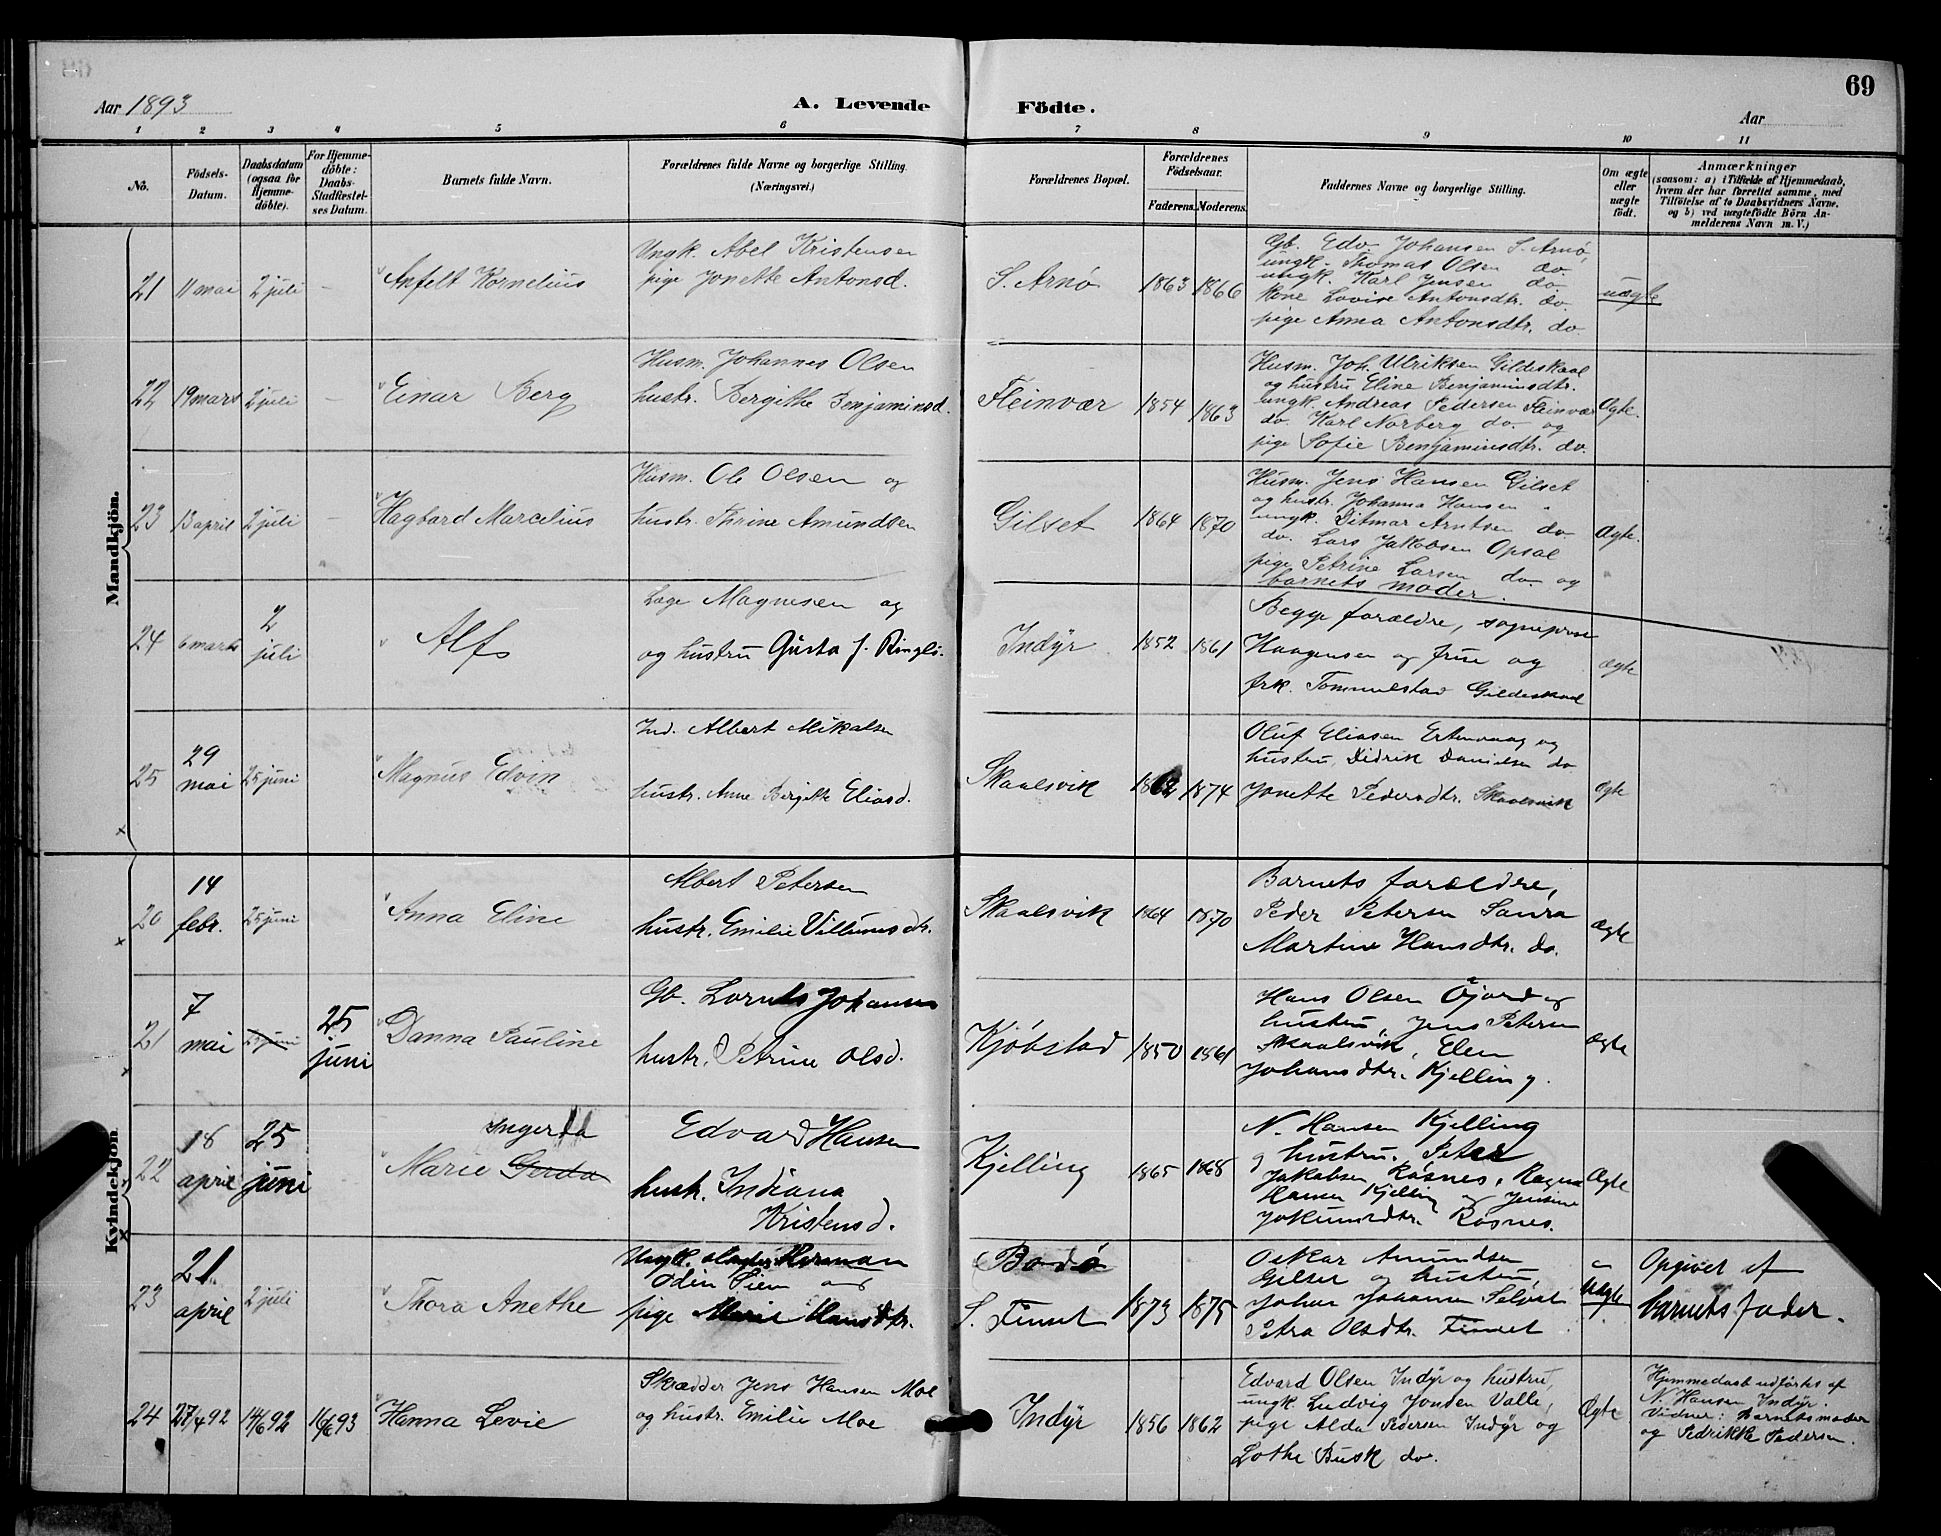 69
Aar 1893
A. Levende Födte.
Aar
1 2 3 4 5 6 7 8 9 10 11
No.
Födsels-Datum.
Daabsdatum (ogsaa for Hjemme-döbte).
For Hjemme-döbte: Daabs-Stadfæstel-ses Datum.
Barnets fulde Navn.
Forældrenes fulde Navne og borgerlige Stilling. (Næringsvei.)
Forældrenes Bopæl.
Forældrenes Födselsaar.
Faderens. Moderens.
Faddernes Navne og borgerlige Stilling.
Om ægte eller uægte födt.
Anmærkninger
(saasom: a) i Tilfælde af Hjemmedaab,
hvem der har forrettet samme, med
Tilföielse af to Daabsvidners Navne,
og b) ved uægtefödte Börn An-
melderens Navn m. V.)
Mandkjön.
21 11 mai 2 juli - Anfelt Kornelius
Ungk. Abel Kristensen
pige Jonette Antonsd.
S. Arnø 1863 1866
Gb. Edv. Johansen S. Arnø,
ungk. Thomas Olsen do
ungk. Karl Jensen do
Kone Lovise Antonsdtr. do.
pige Anna Antonsdtr. do
uægte
22 19 mars 2 juli - Einar Berg
Husm. Johannes Olsen
hustr. Bergithe Benjaminsd.
Fleinvær 1854 1863
Husm. Joh. Ulriksen Gildeskaal
og hustru Eline Benjaminsdtr.
ungk. Andreas Pedersen Fleinvær
do. Karl Norberg do. og
pige Sofie Benjaminsdtr. do.
Ægte.
23 13 april 2 juli - Hagbard Marcelius
Husm. Ole Olsen og
hustr. Thrine Amundsen
Gilset 1864 1870
Husm. Jens Hansen Gilset
og hustr. Johanna Hansen "
ungk. Ditmar Arntsen do
do. Lars Jakobsen Opsal
pige Petrine Larsen do og
barnets moder.
Ægte.
24 6 marts 2 juli Alf
Læge Magnesen og
og hustru Gusta f.
Indyr 1852 1861
Begge forældre, sogneprest
Haagensen og frue og
frk. Gildeskaal
Ægte
25 29 mai 25 juni Magnus Edvin
Ind. Albert Mikalsen
hustr. Anne Bergitte Eliasd.
Skaalsvik 1862 1874
Oluf Eliasen og
hustru, Didrik Danielsen do
Jonette Pedersdtr. Skaalsvik
Ægte
Kvindekjön
20 14 febr. 25 juni Anna Eline
Albert Petersen
hustr. Emilie Villumsdtr.
Skaalsvik 1864 1870
Barnets forældre,
Peder Petersen Laura
Martine Hansdtr. do.
Ægte
21 7 mai 25 juni 25 juni Danna Pauline
Gb. Lornts Johansen
hustr. Petrine Olsd.
Kjøbstad 1850 1861
Hans Olsen Øjord og
hustru, Jens Petersen
Skaalsvik, Elen
Johansdtr. Kjelling.
Ægte
22 18 april 25 juni Marie Gerda Ingerda
Edvard Hansen
hustr. Indiana
Kristensd.
Kjelling 1865 1868
N. Hansen Kjelling
og hustru. Peter
Jakobsen Røsnes, Ragna
Hansen Kjelling og Jensine
Røsnes.
Ægte
23 21 april 2 juli Thora Anethe
Ungk. Herman
Odin og
pige Marie Hansdtr.
Bodø
S. Finset 1873 1875
Oskar Amundsen
Gilset og hustru,
Johan Johansen Selvat
Petra Olsdtr. Finset
Uægte
Opgivet af
barnets fader.
24 27/4 92 14/6 92 16/6 93 Hanna Levie
Skrædder Jens Hansen Moe
og hustr. Emilie Moe
Indyr 1856 1862
Edvard Olsen Indyr og hustru,
ungk. Ludvig Jonsen Valle,
pige Alda Pedersen Indyr og
Lothe Busk do.
Ægte
Hjemmedaab udførtes af
N. Hansen Indyr.
Vidner: Barnets moder
og Pedrikke Pedersen.